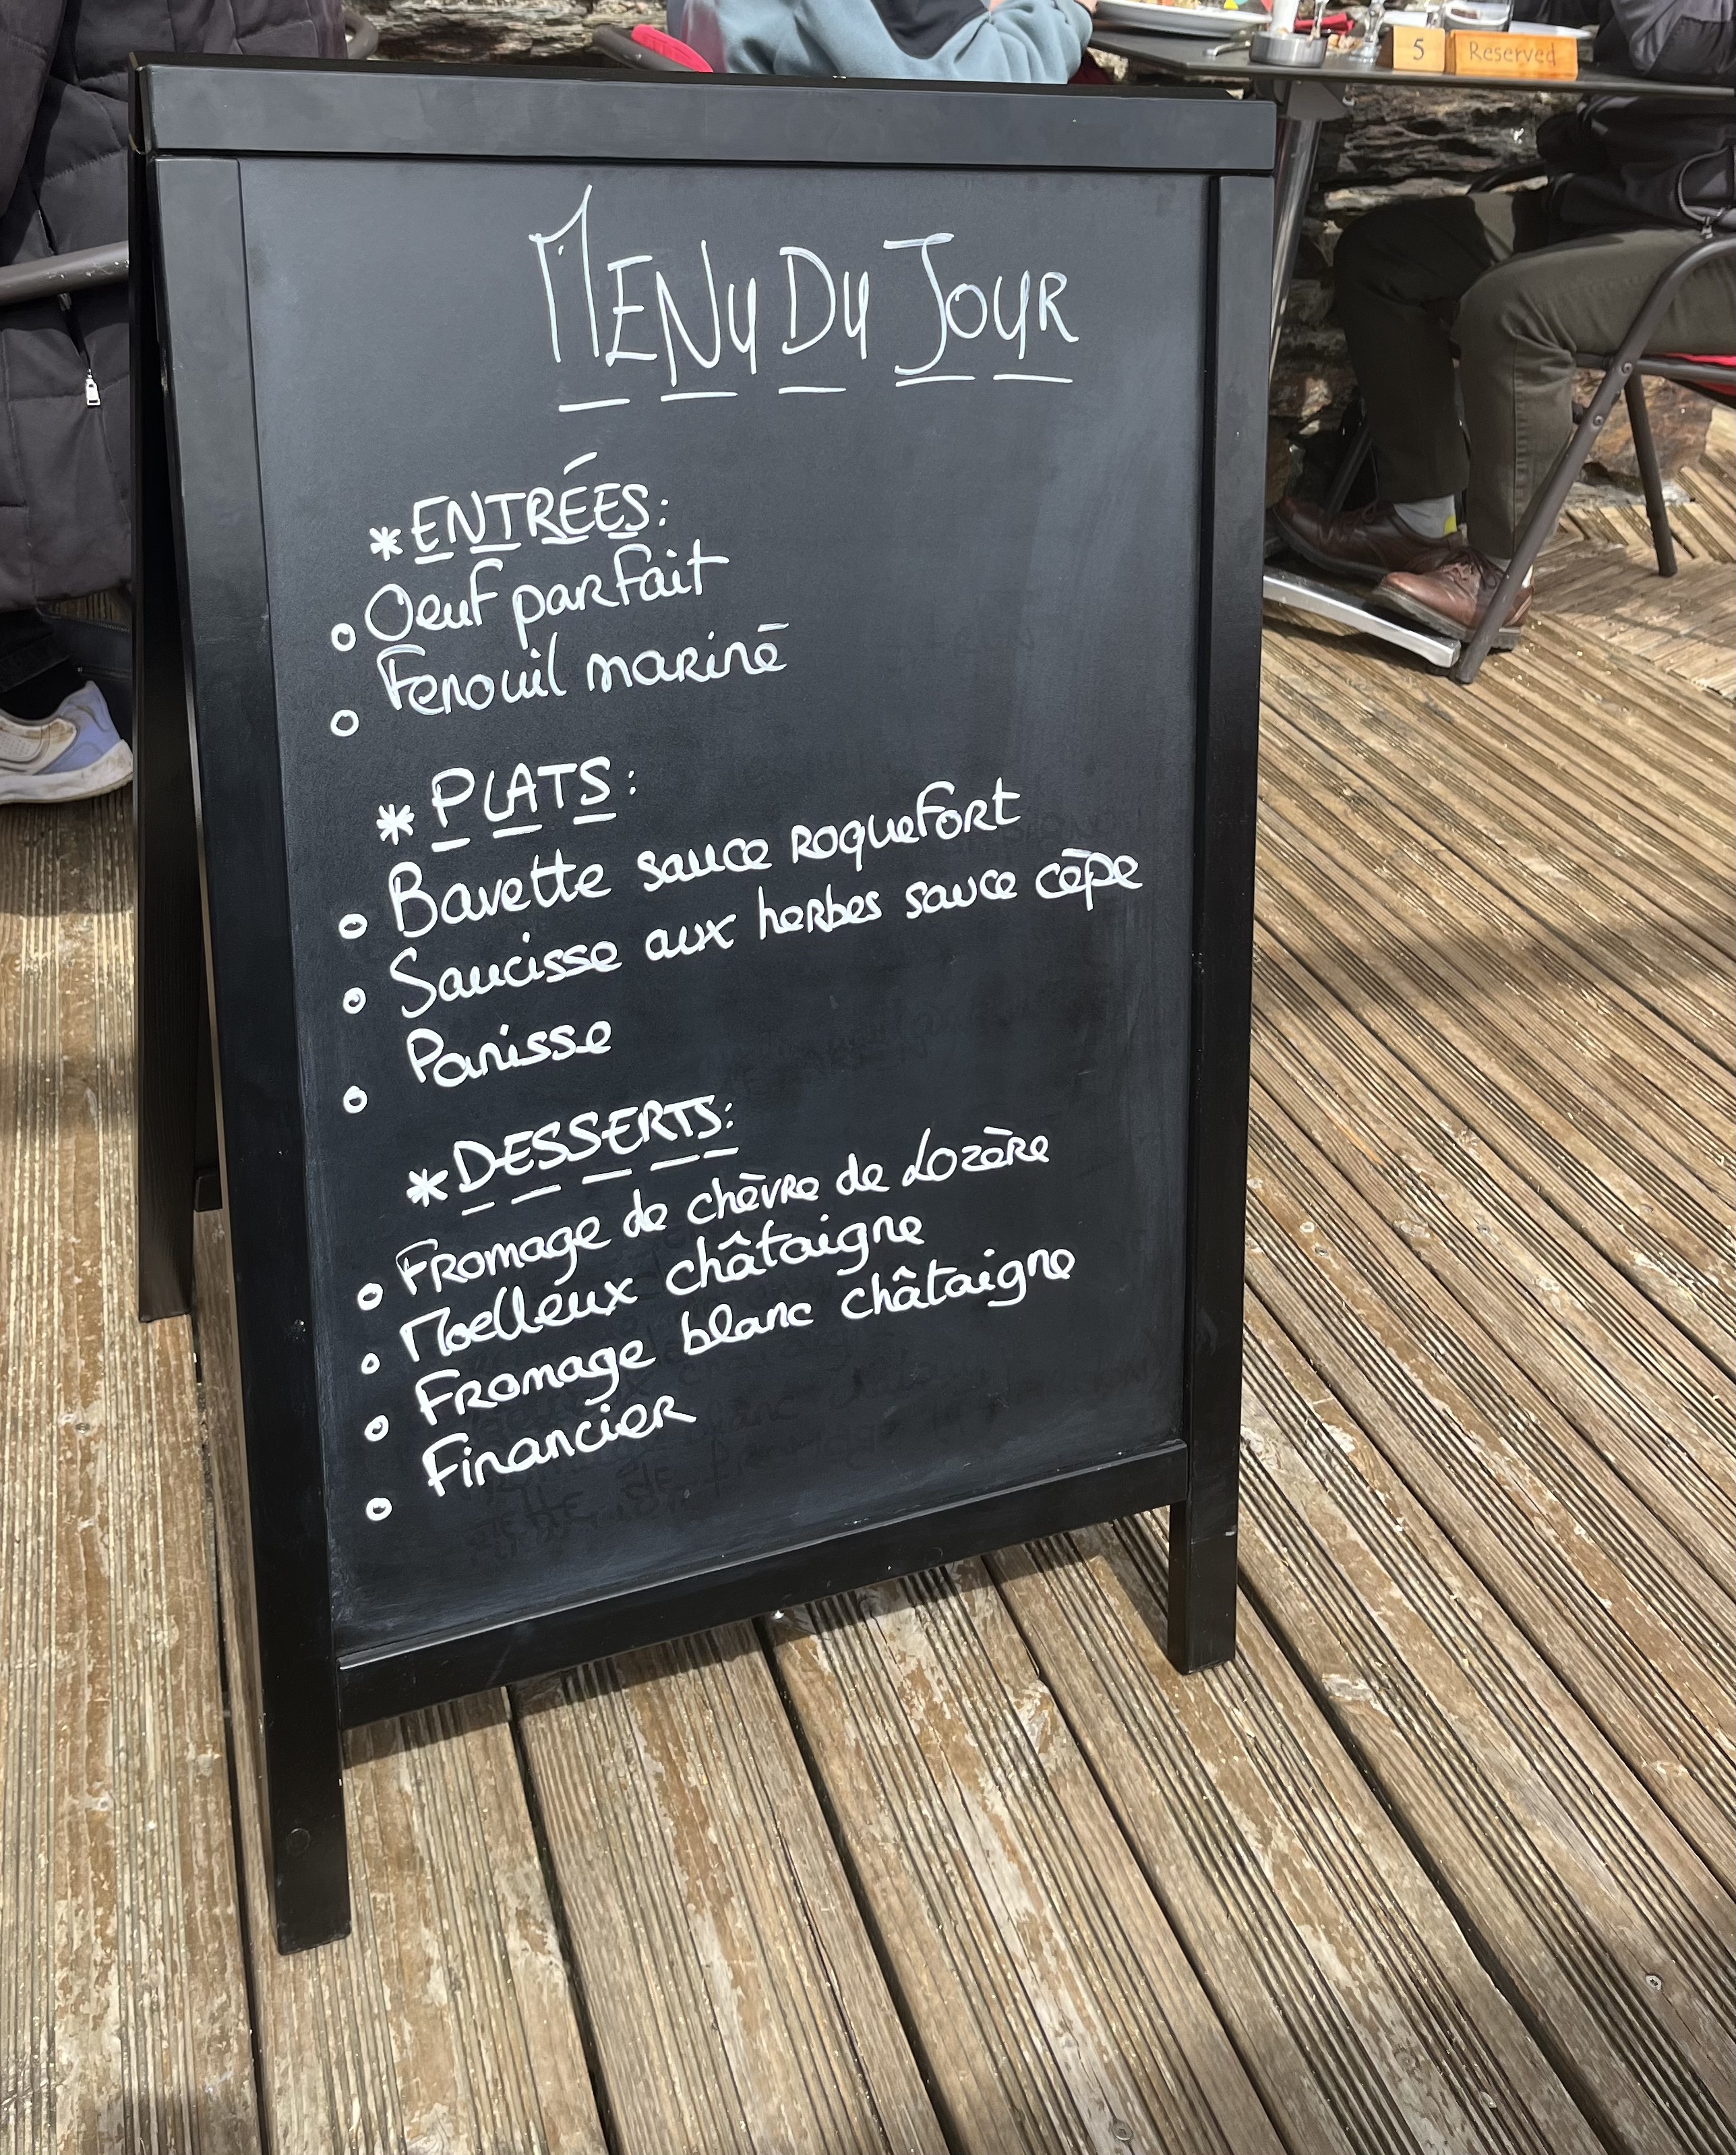 5
Reserved
MENU DU JOUR
*ENTRÉES:
Oeuf parfait
Fenouil mariné
*PLATS:
Bavette sauce roquefort
Saucisse aux herbes sauce cèpe
Panisse
*DESSERTS:
Fromage de chèvre de Lozère
Moelleux châtaigne
Fromage blanc châtaigne
Financier